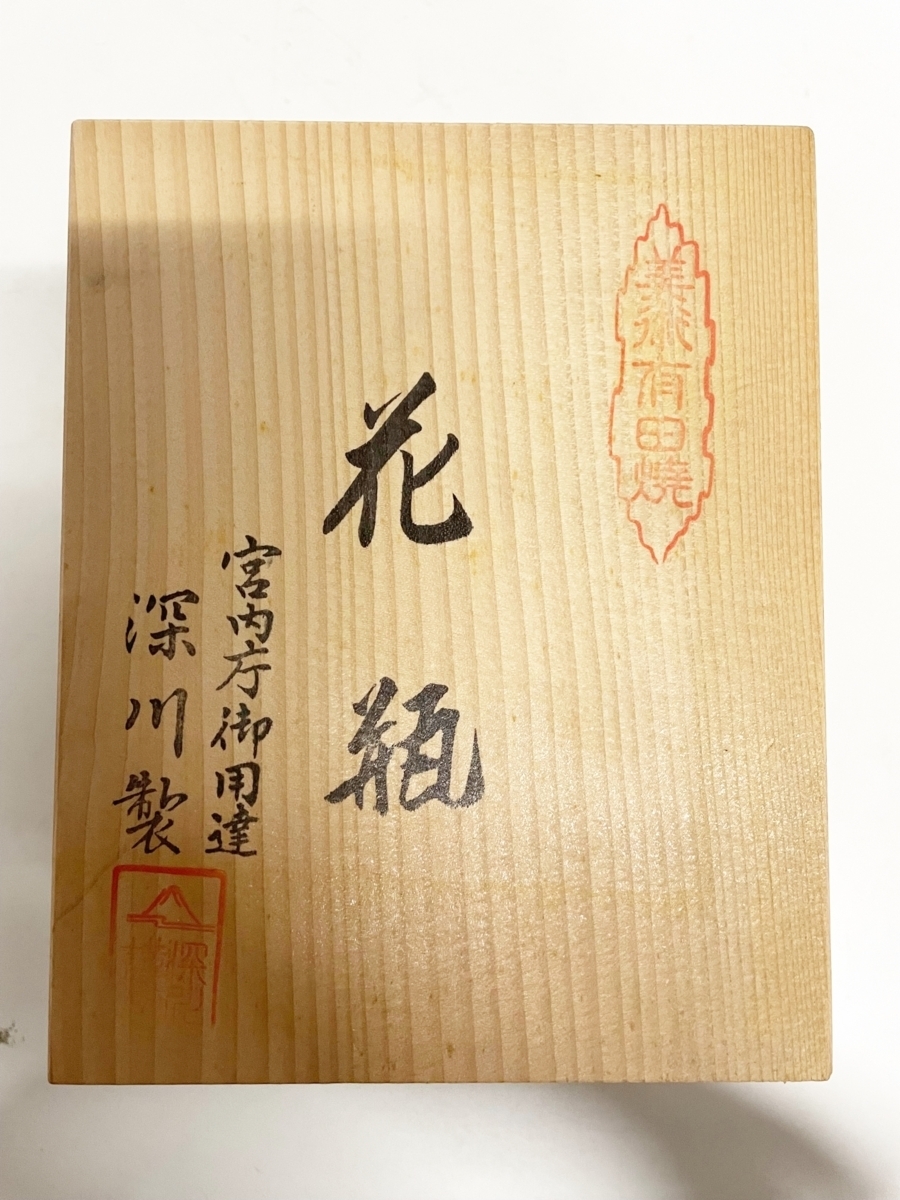 美術有田焼
花瓶
宮内庁御用達
深川製
深川